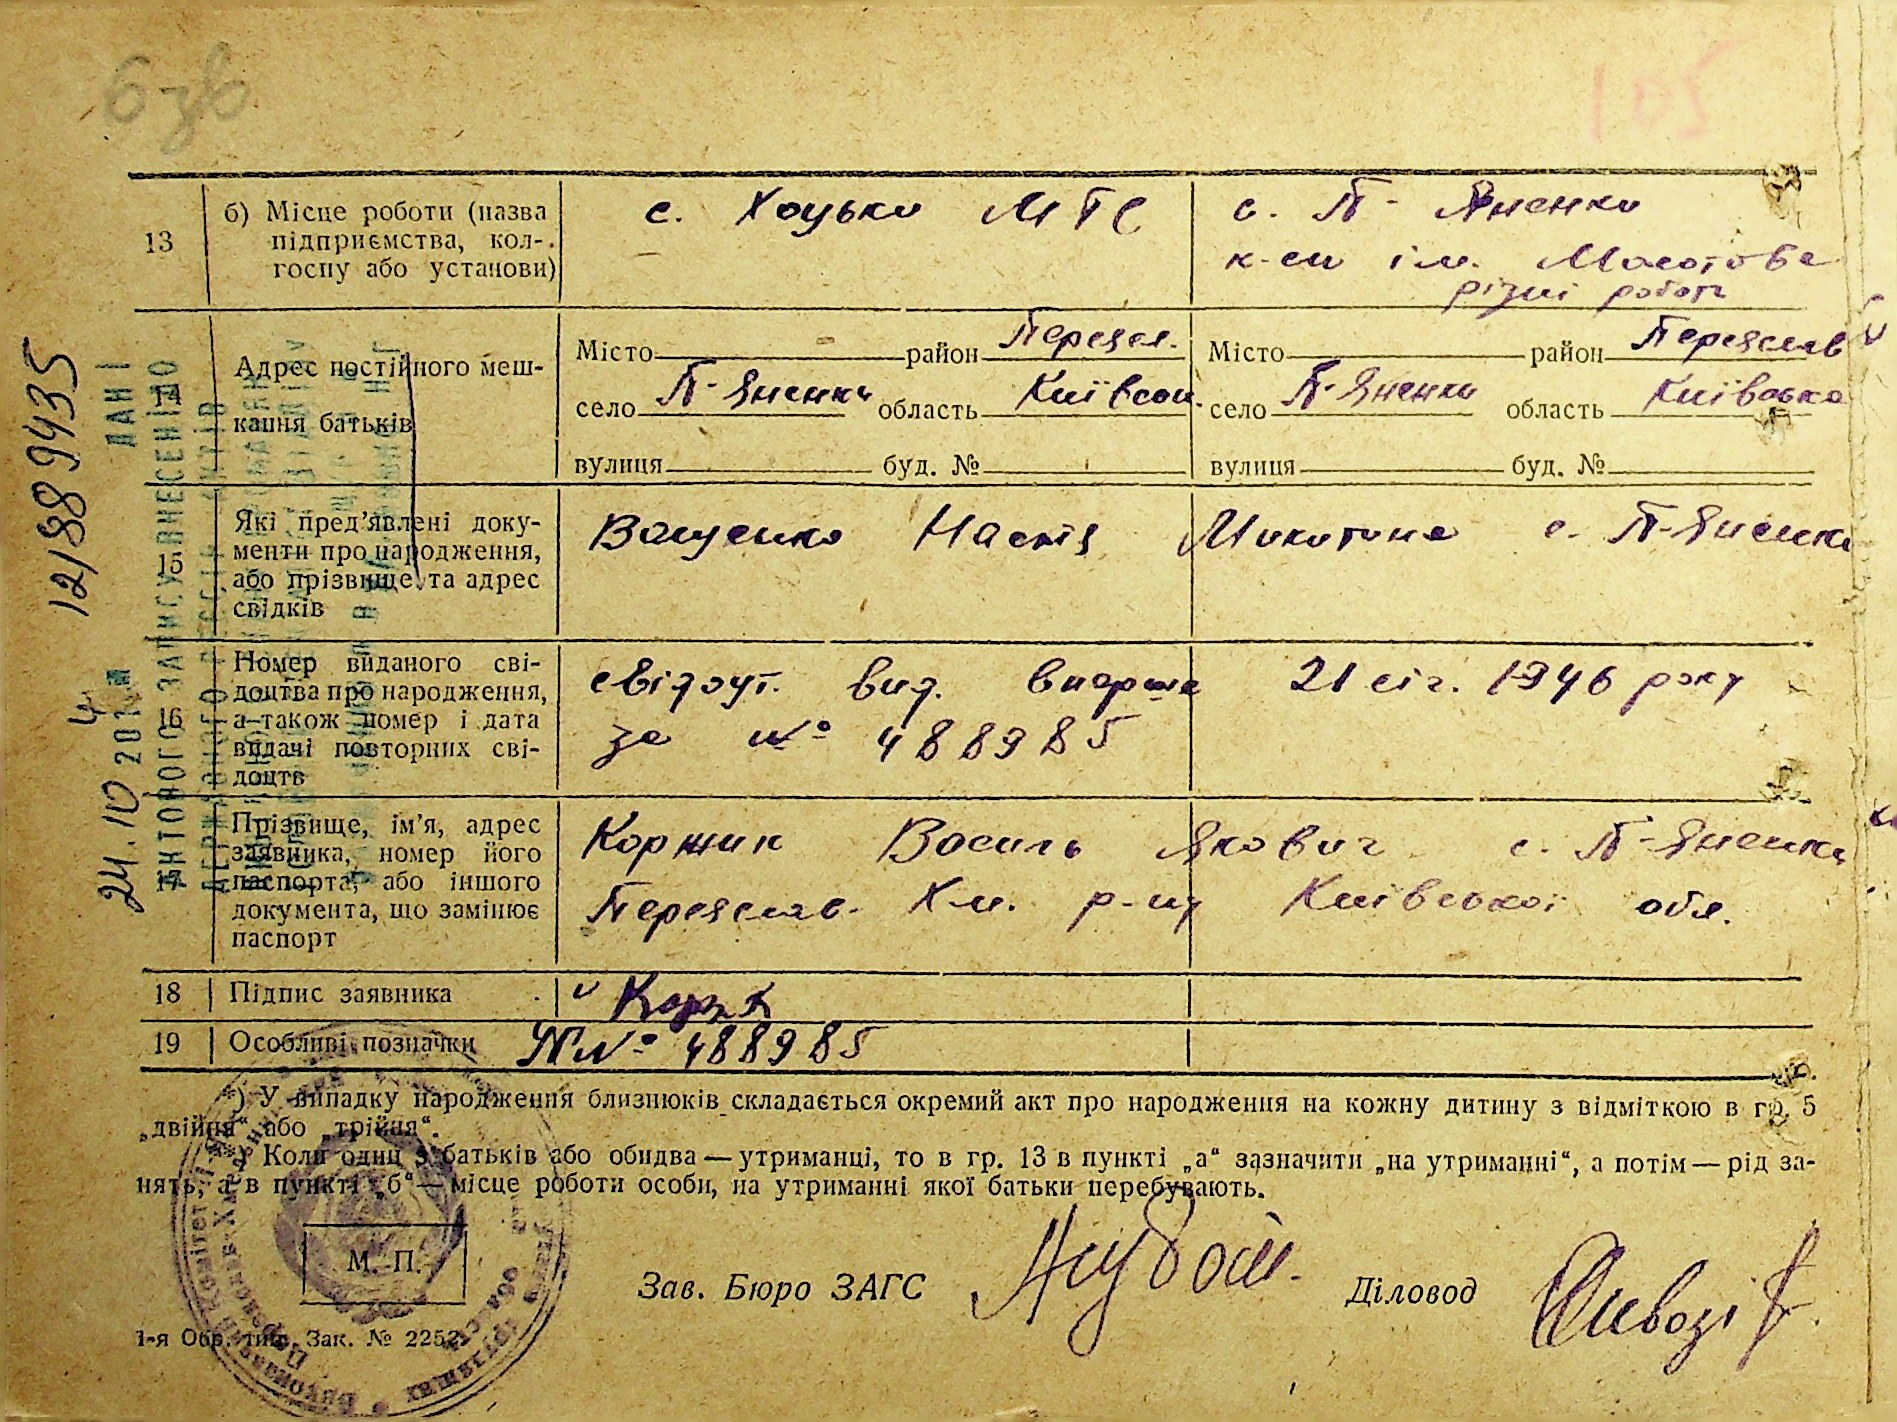 6зв
105
13
б) Місце роботи (назва підприємства, колгоспу або установи)
с. Хоцьки МТС
с. П-Яненки
к-сп ім. Молотова
різні робот
Адрес постійного мешкання батьків
Місто — район Переясл.
село П-Яненки область Київськ.
вулиця буд. №
Місто район Переяслав
село П-Яненки область Київська
вулиця буд. №
15
Які пред’явлені документи про народження, або прізвище та адрес свідків
Ващенко Настя Микитина с. П-Яненки
16
Номер виданого свідоцтва про народження, а також номер і дата видачі повторних свідоцтв
свідоцт. вид. вперше 21 січ. 1946 року
за № 488985
17
Прізвище, ім’я, адрес заявника, номер його паспорта, або іншого документа, що замінює паспорт
Коржик Василь Якович с. П-Яненки
Переяслав. Хм. р-ну Київської обл.
18 Підпис заявника
19 Особливі позначки № 488985
*) У випадку народження близнюків складається окремий акт про народження на кожну дитину з відміткою в гр. 5
„двійня“ або „трійня“.
Коли один з батьків або обидва — утриманці, то в гр. 13 в пункті „а“ зазначити „на утриманні“, а потім — рід за-
нять, а в пункті „б“ — місце роботи особи, на утриманні якої батьки перебувають.
М. П.
Зав. Бюро ЗАГС
Діловод
1-я Обр. тип. Зак. № 2252
12188 9435
ДАНІ
АКТОВОГО ЗАПИСУ ВНЕСЕНІ ДО
24.10 201